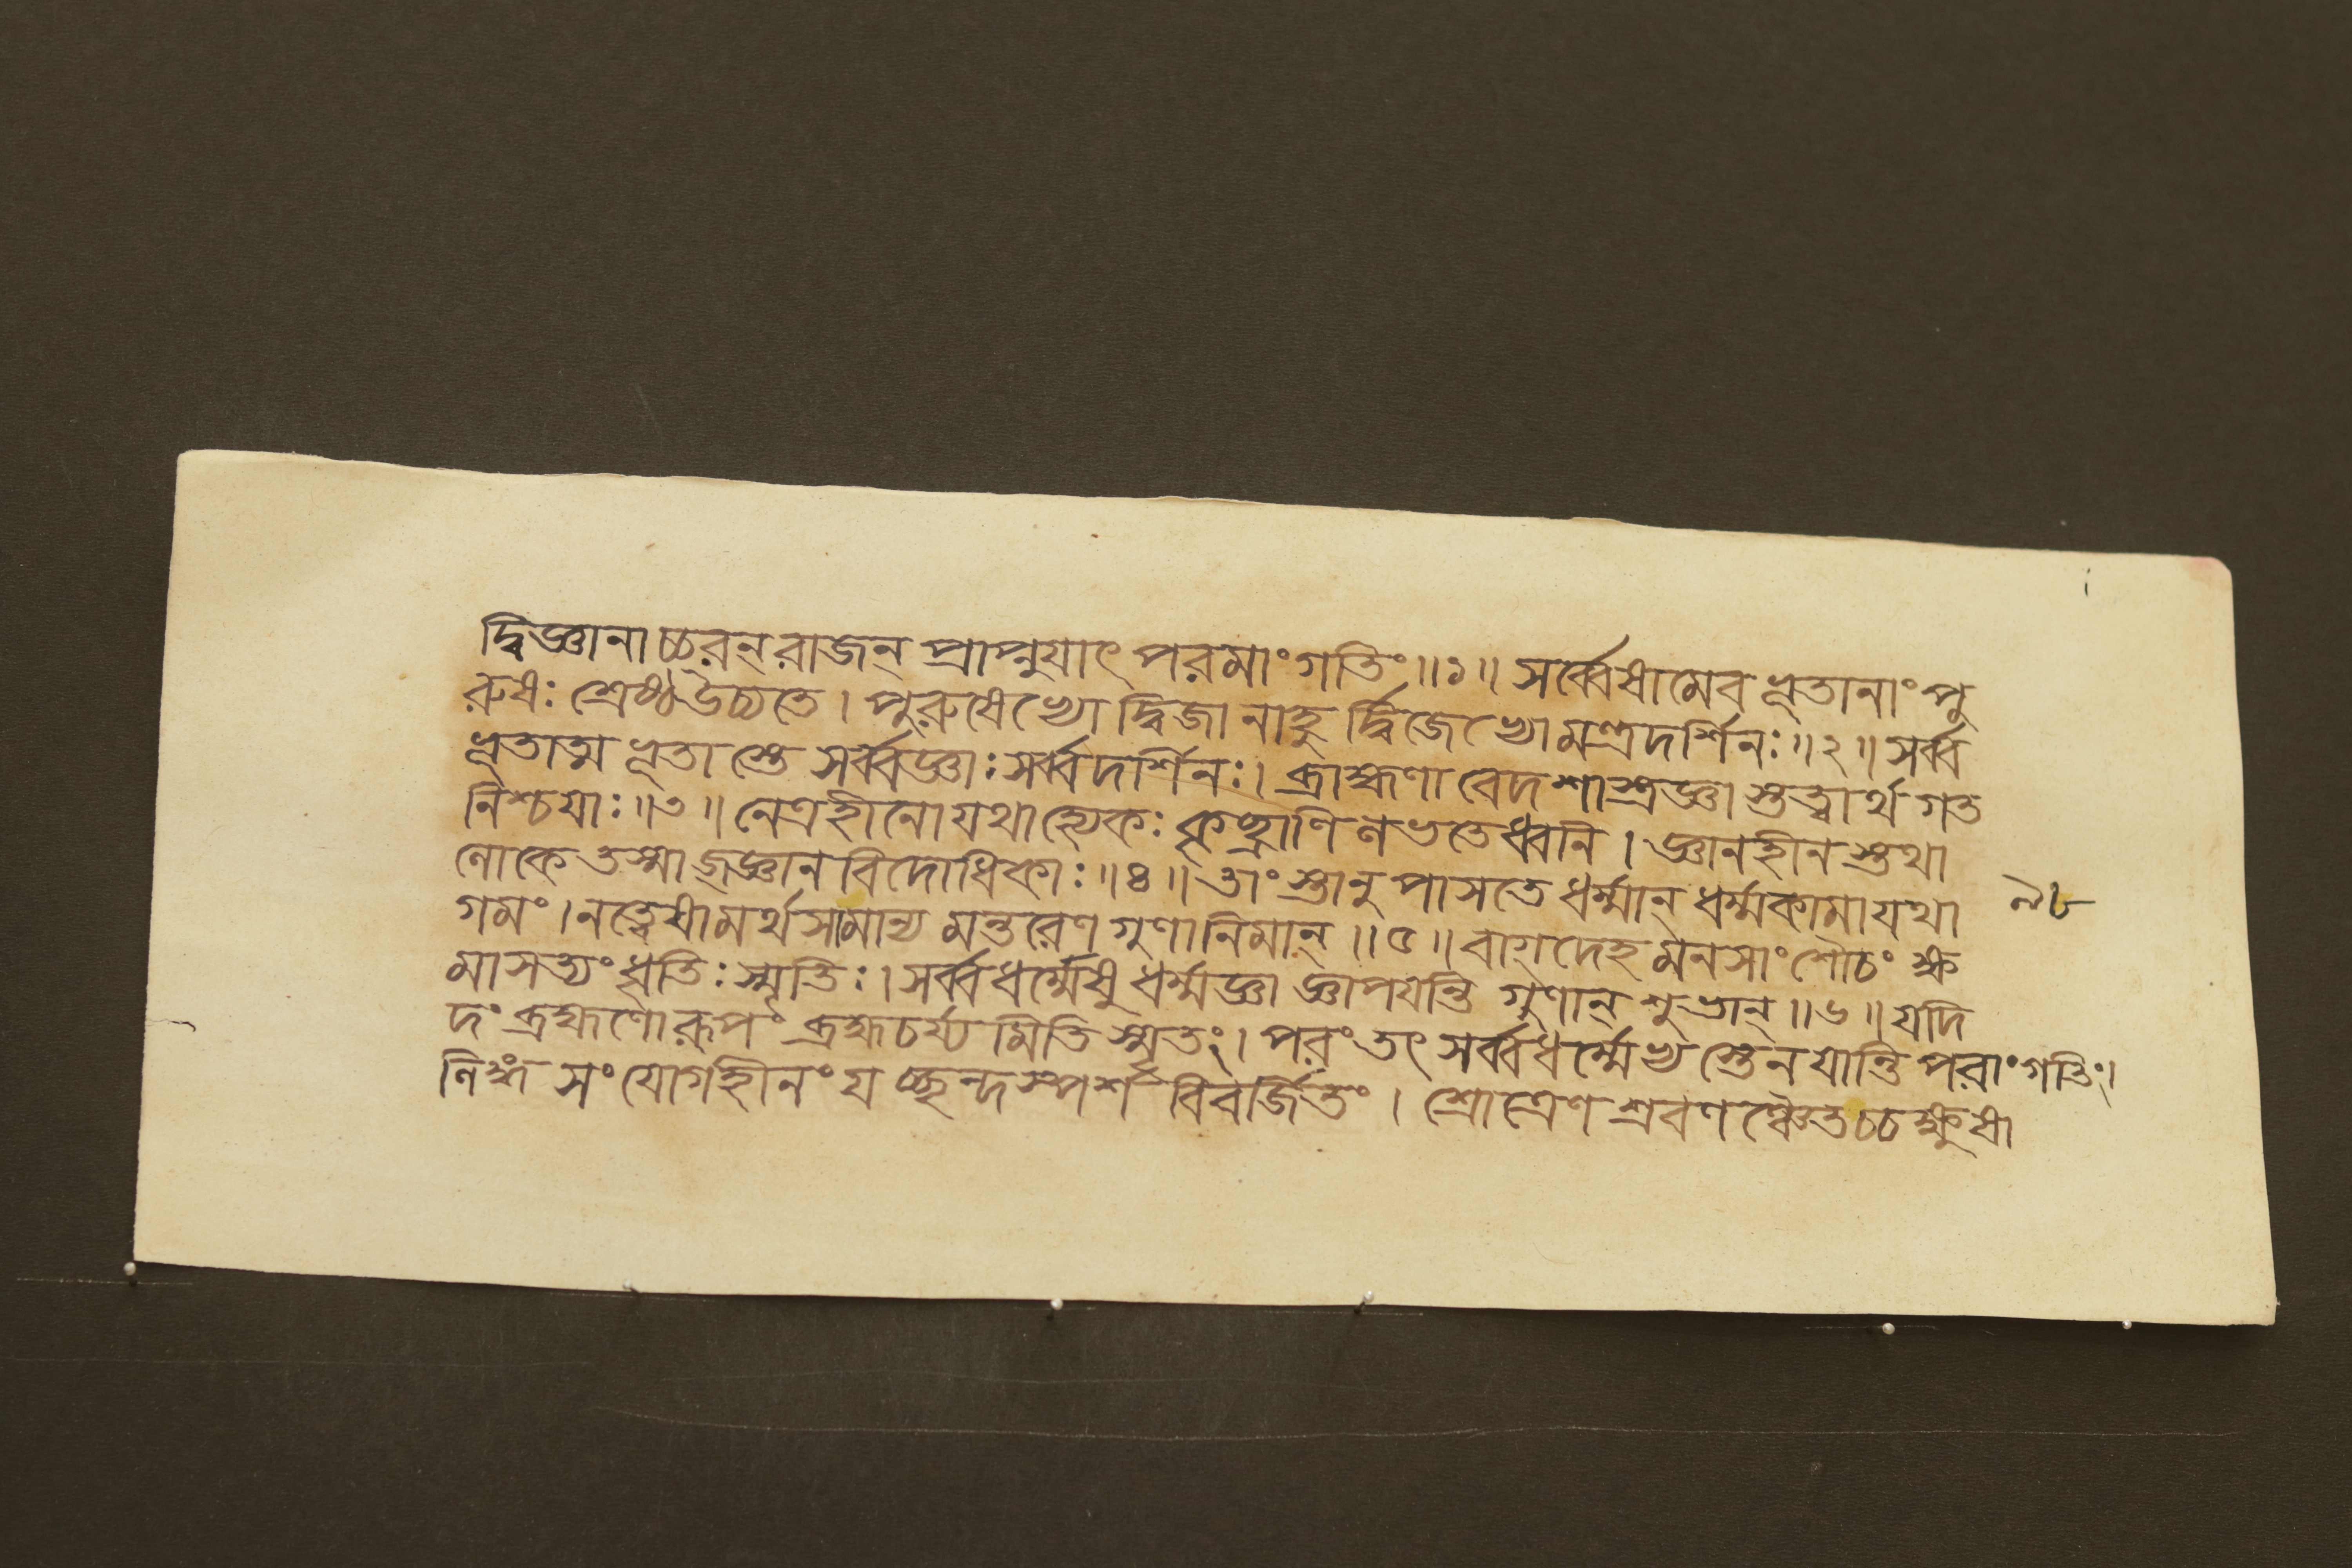 দ্বিজ্ঞানাচ্চরন্ রাজন্ প্রাপ্নুয়াৎ পরমাং গতিং ॥১॥ সর্ব্বেষামেব ভূতানাং পু
রুষঃ শ্রেষ্ঠ উচ্যতে । পুরুষেভ্যো দ্বিজানাহু র্দ্বিজেভ্যো মন্ত্রদর্শিনঃ ॥২॥ সর্ব্ব
ভূতাত্ম ভূতা স্তে সর্ব্বজ্ঞাঃ সর্ব্বদর্শিনঃ । ব্রাহ্মণা বেদশাস্ত্রজ্ঞা স্তত্ত্বার্থ গত
নিশ্চয়াঃ ॥৩॥ নেত্রহীনো যথা হ্যেকঃ কৃচ্ছ্রাণি লভতেধ্বনি । জ্ঞানহীন স্তথা
লোকে তস্মাজ্জ্ঞান বিদোধিকাঃ ॥৪॥ তাংস্তানুপাসতে ধর্ম্মান্ ধর্ম্মকামা যথা
গমং । নত্ত্বেষামর্থসামান্য মন্তরেণ গুণানিমান্ ॥৫॥ বাগ্দেহ মনসাং শৌচং ক্ষ
মা সত্যং ধৃতিঃ স্মৃতিঃ । সর্ব্বধর্ম্মেষু ধর্ম্মজ্ঞা জ্ঞাপয়ন্তি গুণান্ শুভান্ ॥৬॥ যদি
দং ব্রহ্মণো রূপং ব্রহ্মচর্য্য মিতি স্মৃতং । পরং তৎ সর্ব্বধর্ম্মেভ্য স্তেন যান্তি পরাং গতিং ।
লিঙ্গ সংযোগহীনং যচ্ছব্দ স্পর্শ বিবর্জিতং । শ্রোত্রেণ শ্রবণঞ্চৈব চক্ষুষা
৯৮